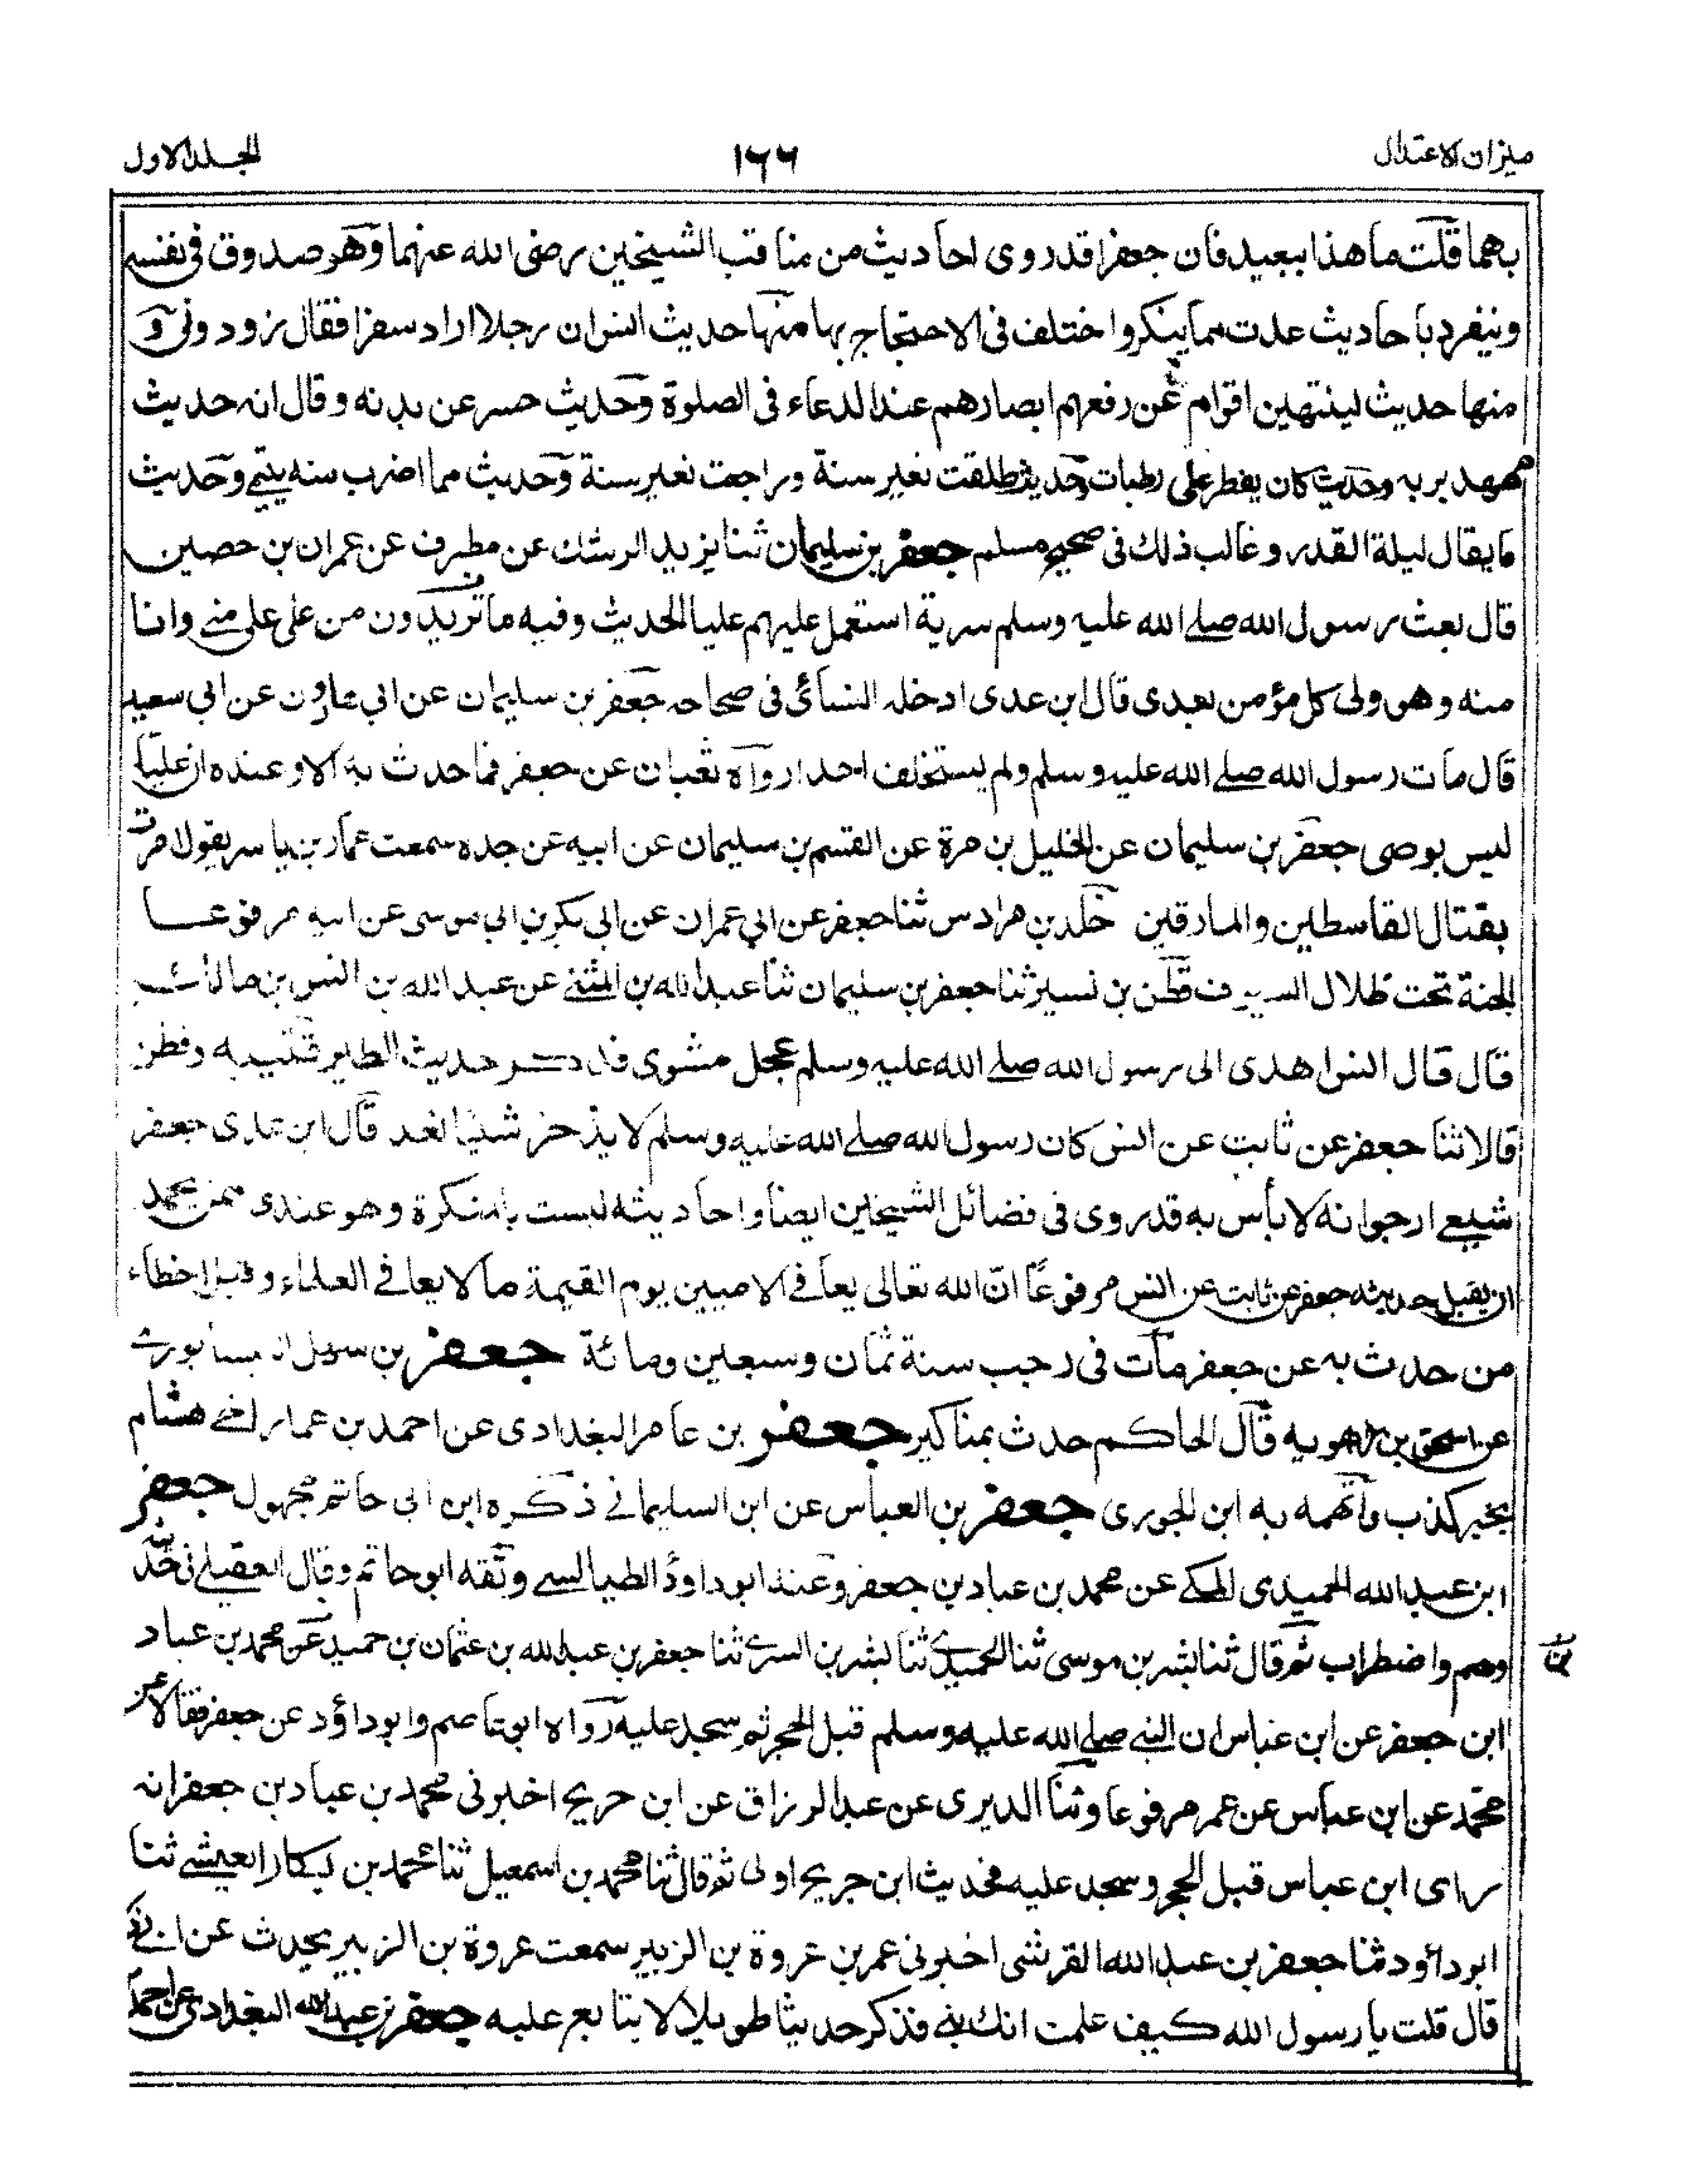 ميزان الاعتدال
١٦٦
المجلد الاول
بهما قلت ما هذا ببعيد فان جعفرا قد روى احاديث من مناقب الشيخين رضى الله عنهما وهو صدوق فى نفسه
وينفرد باحاديث عدت مما ينكر واختلف فى الاحتجاج بها منها حديث انس ان رجلا اراد سفرا فقال زودونى و
منها حديث لينتهين اقوام عن رفعهم ابصارهم عند الدعاء فى الصلوة وحديث حسر عن بدنه وقال انه حديث
عهد بربه وحديث كان يفطر على رطبات وحديث طلقت لغير سنة وراجعت لغير سنة وحديث مما اضرب منه يتيمي وحديث
ما يقال ليلة القدر وغالب ذلك فى صحيح مسلم جعفر بن سليمان ثنا يزيد الرشك عن مطرف عن عمران بن حصين
قال بعث رسول الله صلے الله عليه وسلم سرية استعمل عليهم عليا الحديث وفيه ما تريدون من على على منے وانا
منه وهو ولى كل مؤمن بعدى قال ابن عدى ادخله النسائى فى صحاحه جعفر بن سليمان عن ابي هارون عن ابي سعيد
قال مات رسول الله صلے الله عليه وسلم ولم يستخلف احدا رواه ثقبان عن جعفر فما حدث به الا وعنده ان عليا
ليس بوصى جعفر بن سليمان عن الخليل بن مرة عن القسم بن سليمان عن ابيه عن جده سمعت عمار بن ياسر يقول امرت
بقتال القاسطين والمارقين خلد بن مرادس ثنا جعفر عن ابي عمران عن ابي بكر بن ابي موسى عن ابيه مرفوعا
الجنة تحت ظلال السيوف قطن بن نسير ثنا جعفر بن سليمان ثنا عبد الله بن المثنے عن عبد الله بن انس بن مالك
قال قال انس اهدى الى رسول الله صلے الله عليه وسلم عجل مشوى فذكر حديث الطير قتيبه وقطن
قالا ثنا جعفر عن ثابت عن انس كان رسول الله صلے الله عليه وسلم لا يذخر شيئا لغد قال ابن عدى جعفر
شيعے ارجوانه لا بأس به قد روى فى فضائل الشيخين ايضا واحاديثه ليست بالمنكرة وهو عندى ممن يجب
ان يقبل حديثه جعفر عن ثابت عن انس مرفوعًا انّ الله تعالى يعافے الاميين يوم القيمة ما لا يعافے العلماء وقيل اخطاء
من حدث به عن جعفر مات فى رجب سنة ثمان وسبعين ومائة جعفر بن سهل النيسابورے
عن اسحق بن راهويه قال الحاكم حدث بمناكير جعفر بن عامر البغدادى عن احمد بن عمار اخے هشام
بخبر كذب واتهمه به ابن الجوزى جعفر بن العباس عن ابن السليمانے ذكره ابن ابى حاتم مجهول جعفر
ابن عبد الله الحميدى المكے عن محمد بن عباد بن جعفر وعنه ابو داوٗد الطيالسے وثقه ابو حاتم وقال العقيلے فى حديثه
وهم واضطراب ثم قال ثنا بشر بن موسى ثنا الحميدے ثنا بشر بن السرے ثنا جعفر بن عبد الله بن عثمان بن حميد عن محمد بن عباد
ابن جعفر عن ابن عباس ان النبے صلے الله عليه وسلم قبل الحجر ثم سجد عليه رواه ابو عاصم وابو داؤد عن جعفر فقالا عن
محمد عن ابن عباس عن عمر مرفوعا وثنا الدبرى عن عبد الرزاق عن ابن جريج اخبرنى محمد بن عباد بن جعفر انه
راى ابن عباس قبل الحجر وسجد عليه فحديث ابن جريج اولى ثم قال ثنا محمد بن اسمعيل ثنا محمد بن بكار العيشے ثنا
ابو داؤد ثنا جعفر بن عبد الله القرشى اخبرنى عمر بن عروة بن الزبير سمعت عروة بن الزبير يحدث عن ابے ذر
قال قلت يا رسول الله كيف علمت انك نبے فذكر حديثا طويلا لا يتابع عليه جعفر بن عبد الله البغدادى عن احمد